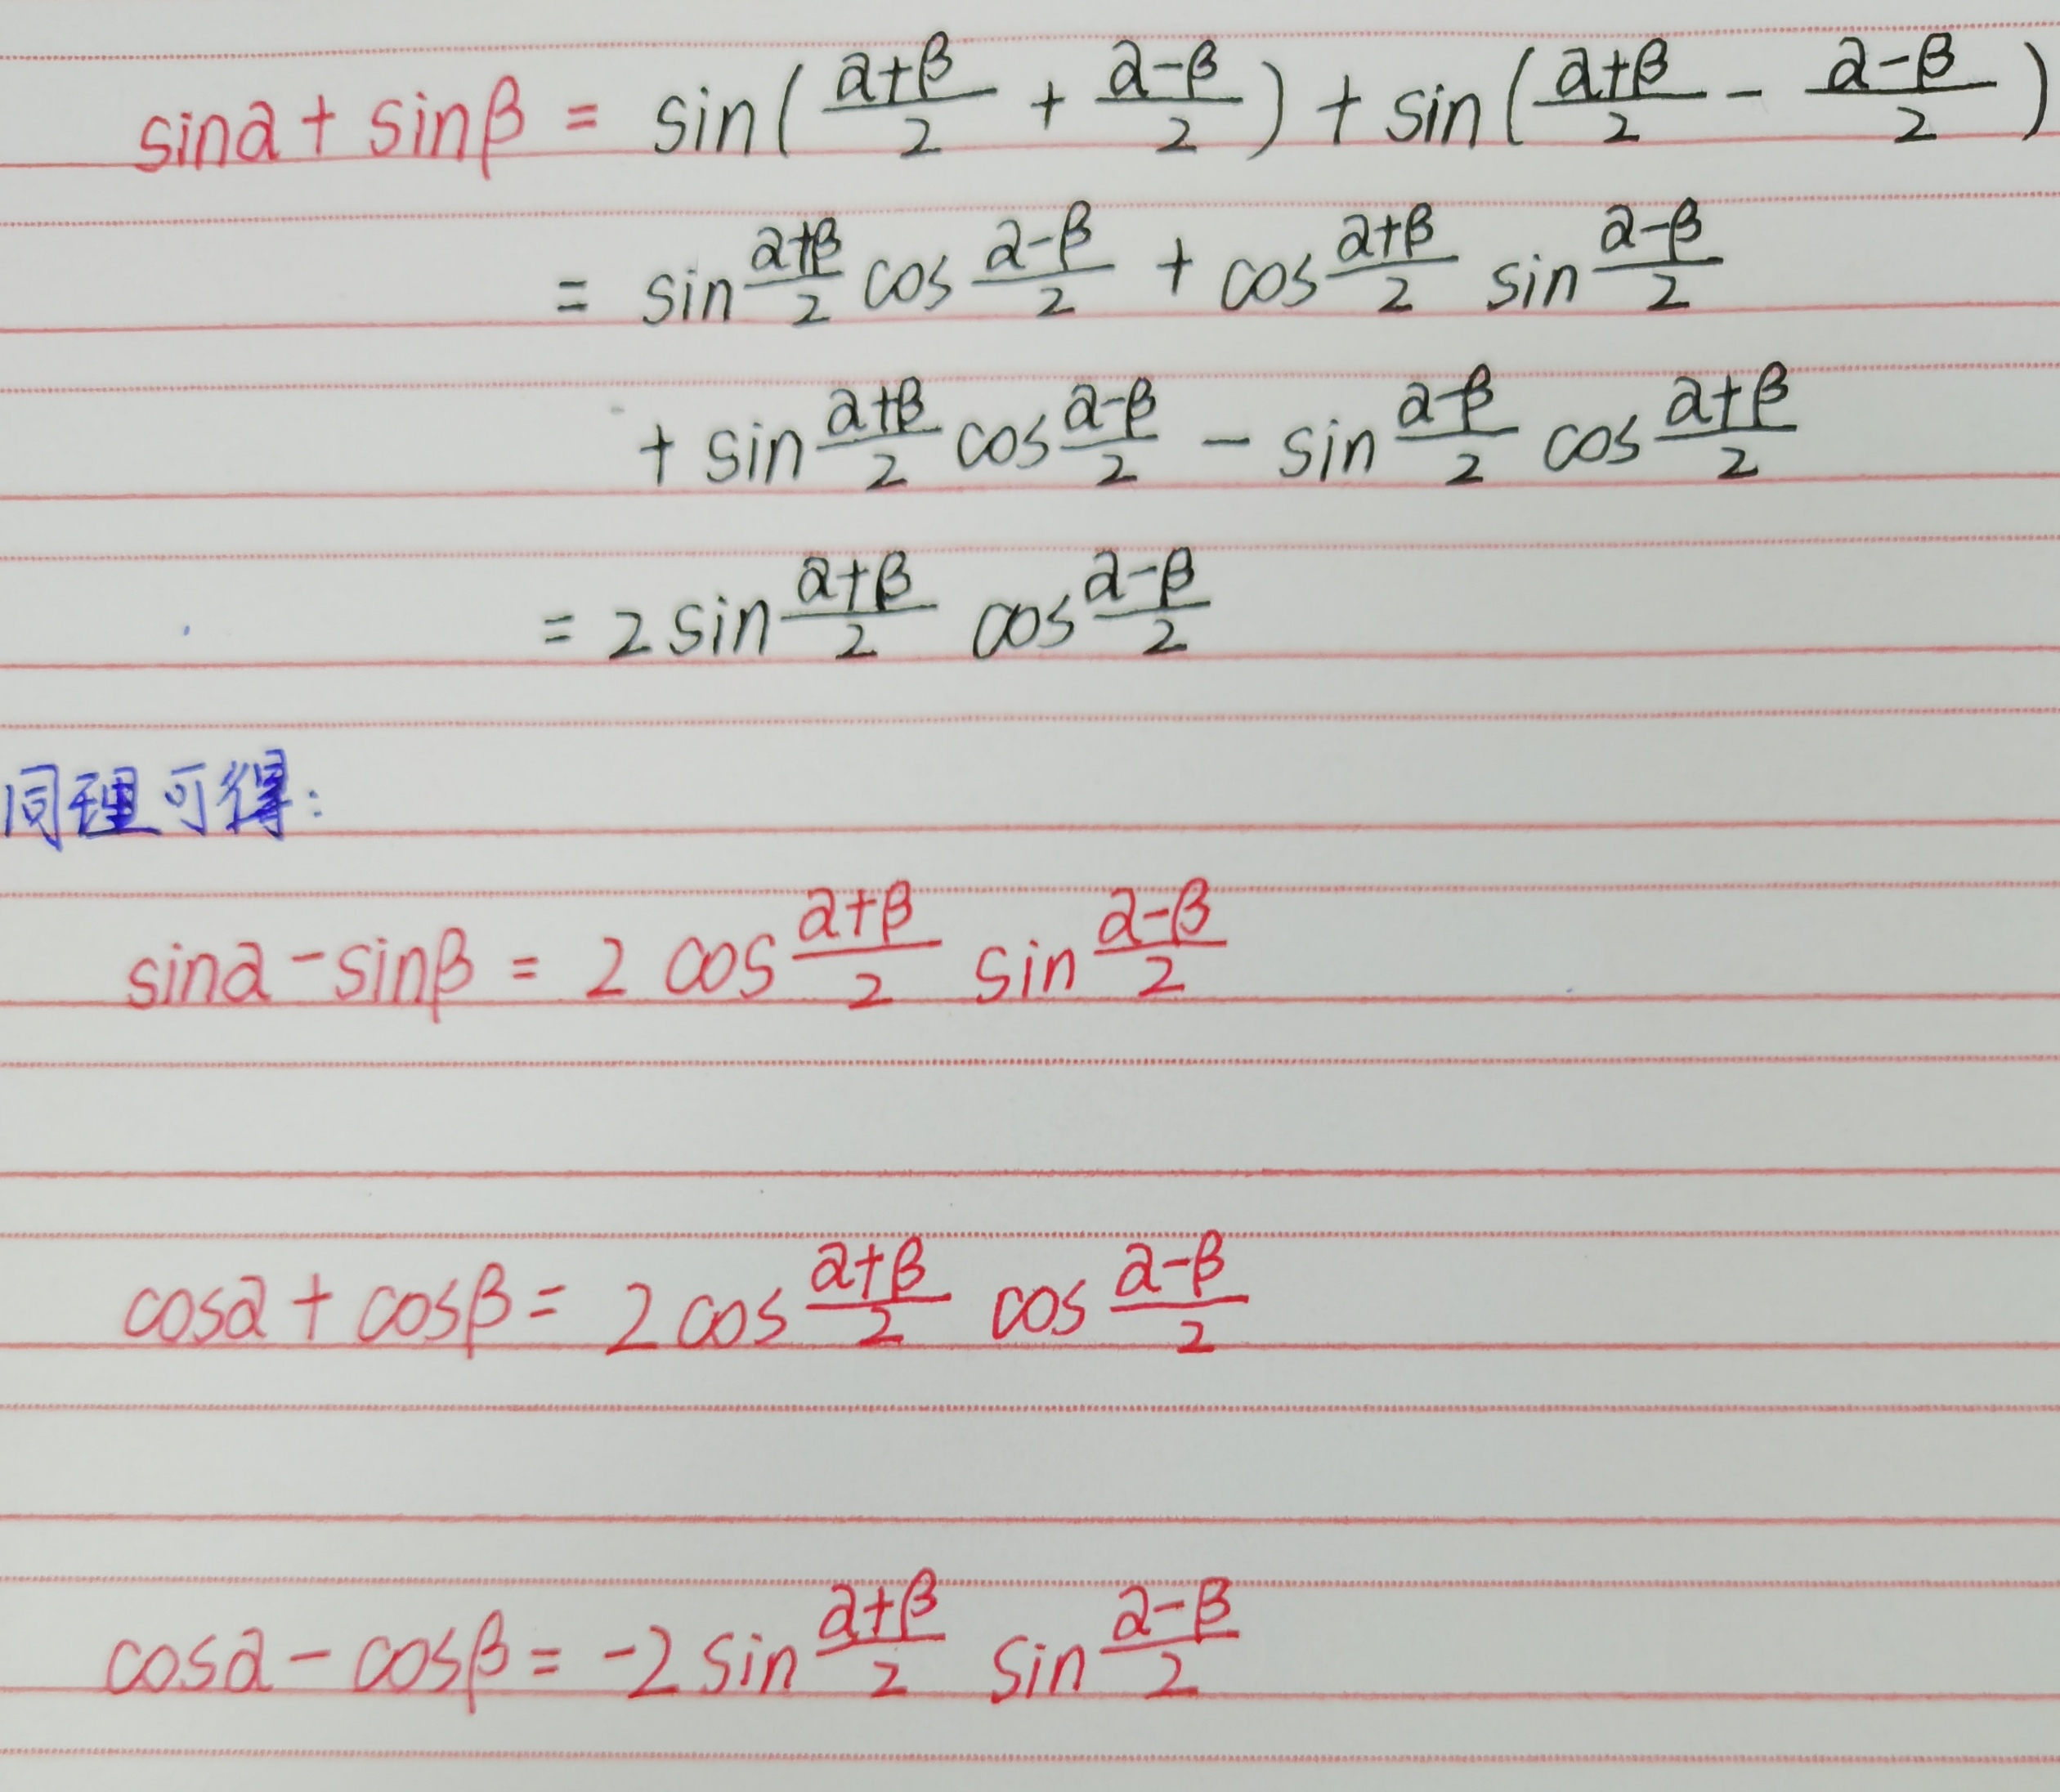 sinα + sinβ = sin(\frac{α+β}{2} + \frac{α-β}{2}) + sin(\frac{α+β}{2} - \frac{α-β}{2})
= sin\frac{α+β}{2} cos\frac{α-β}{2} + cos\frac{α+β}{2} sin\frac{α-β}{2}
+ sin\frac{α+β}{2} cos\frac{α-β}{2} - sin\frac{α-β}{2} cos\frac{α+β}{2}
= 2 sin\frac{α+β}{2} cos\frac{α-β}{2}
同理可得:
sinα - sinβ = 2 cos\frac{α+β}{2} sin\frac{α-β}{2}
cosα + cosβ = 2 cos\frac{α+β}{2} cos\frac{α-β}{2}
cosα - cosβ = -2 sin\frac{α+β}{2} sin\frac{α-β}{2}